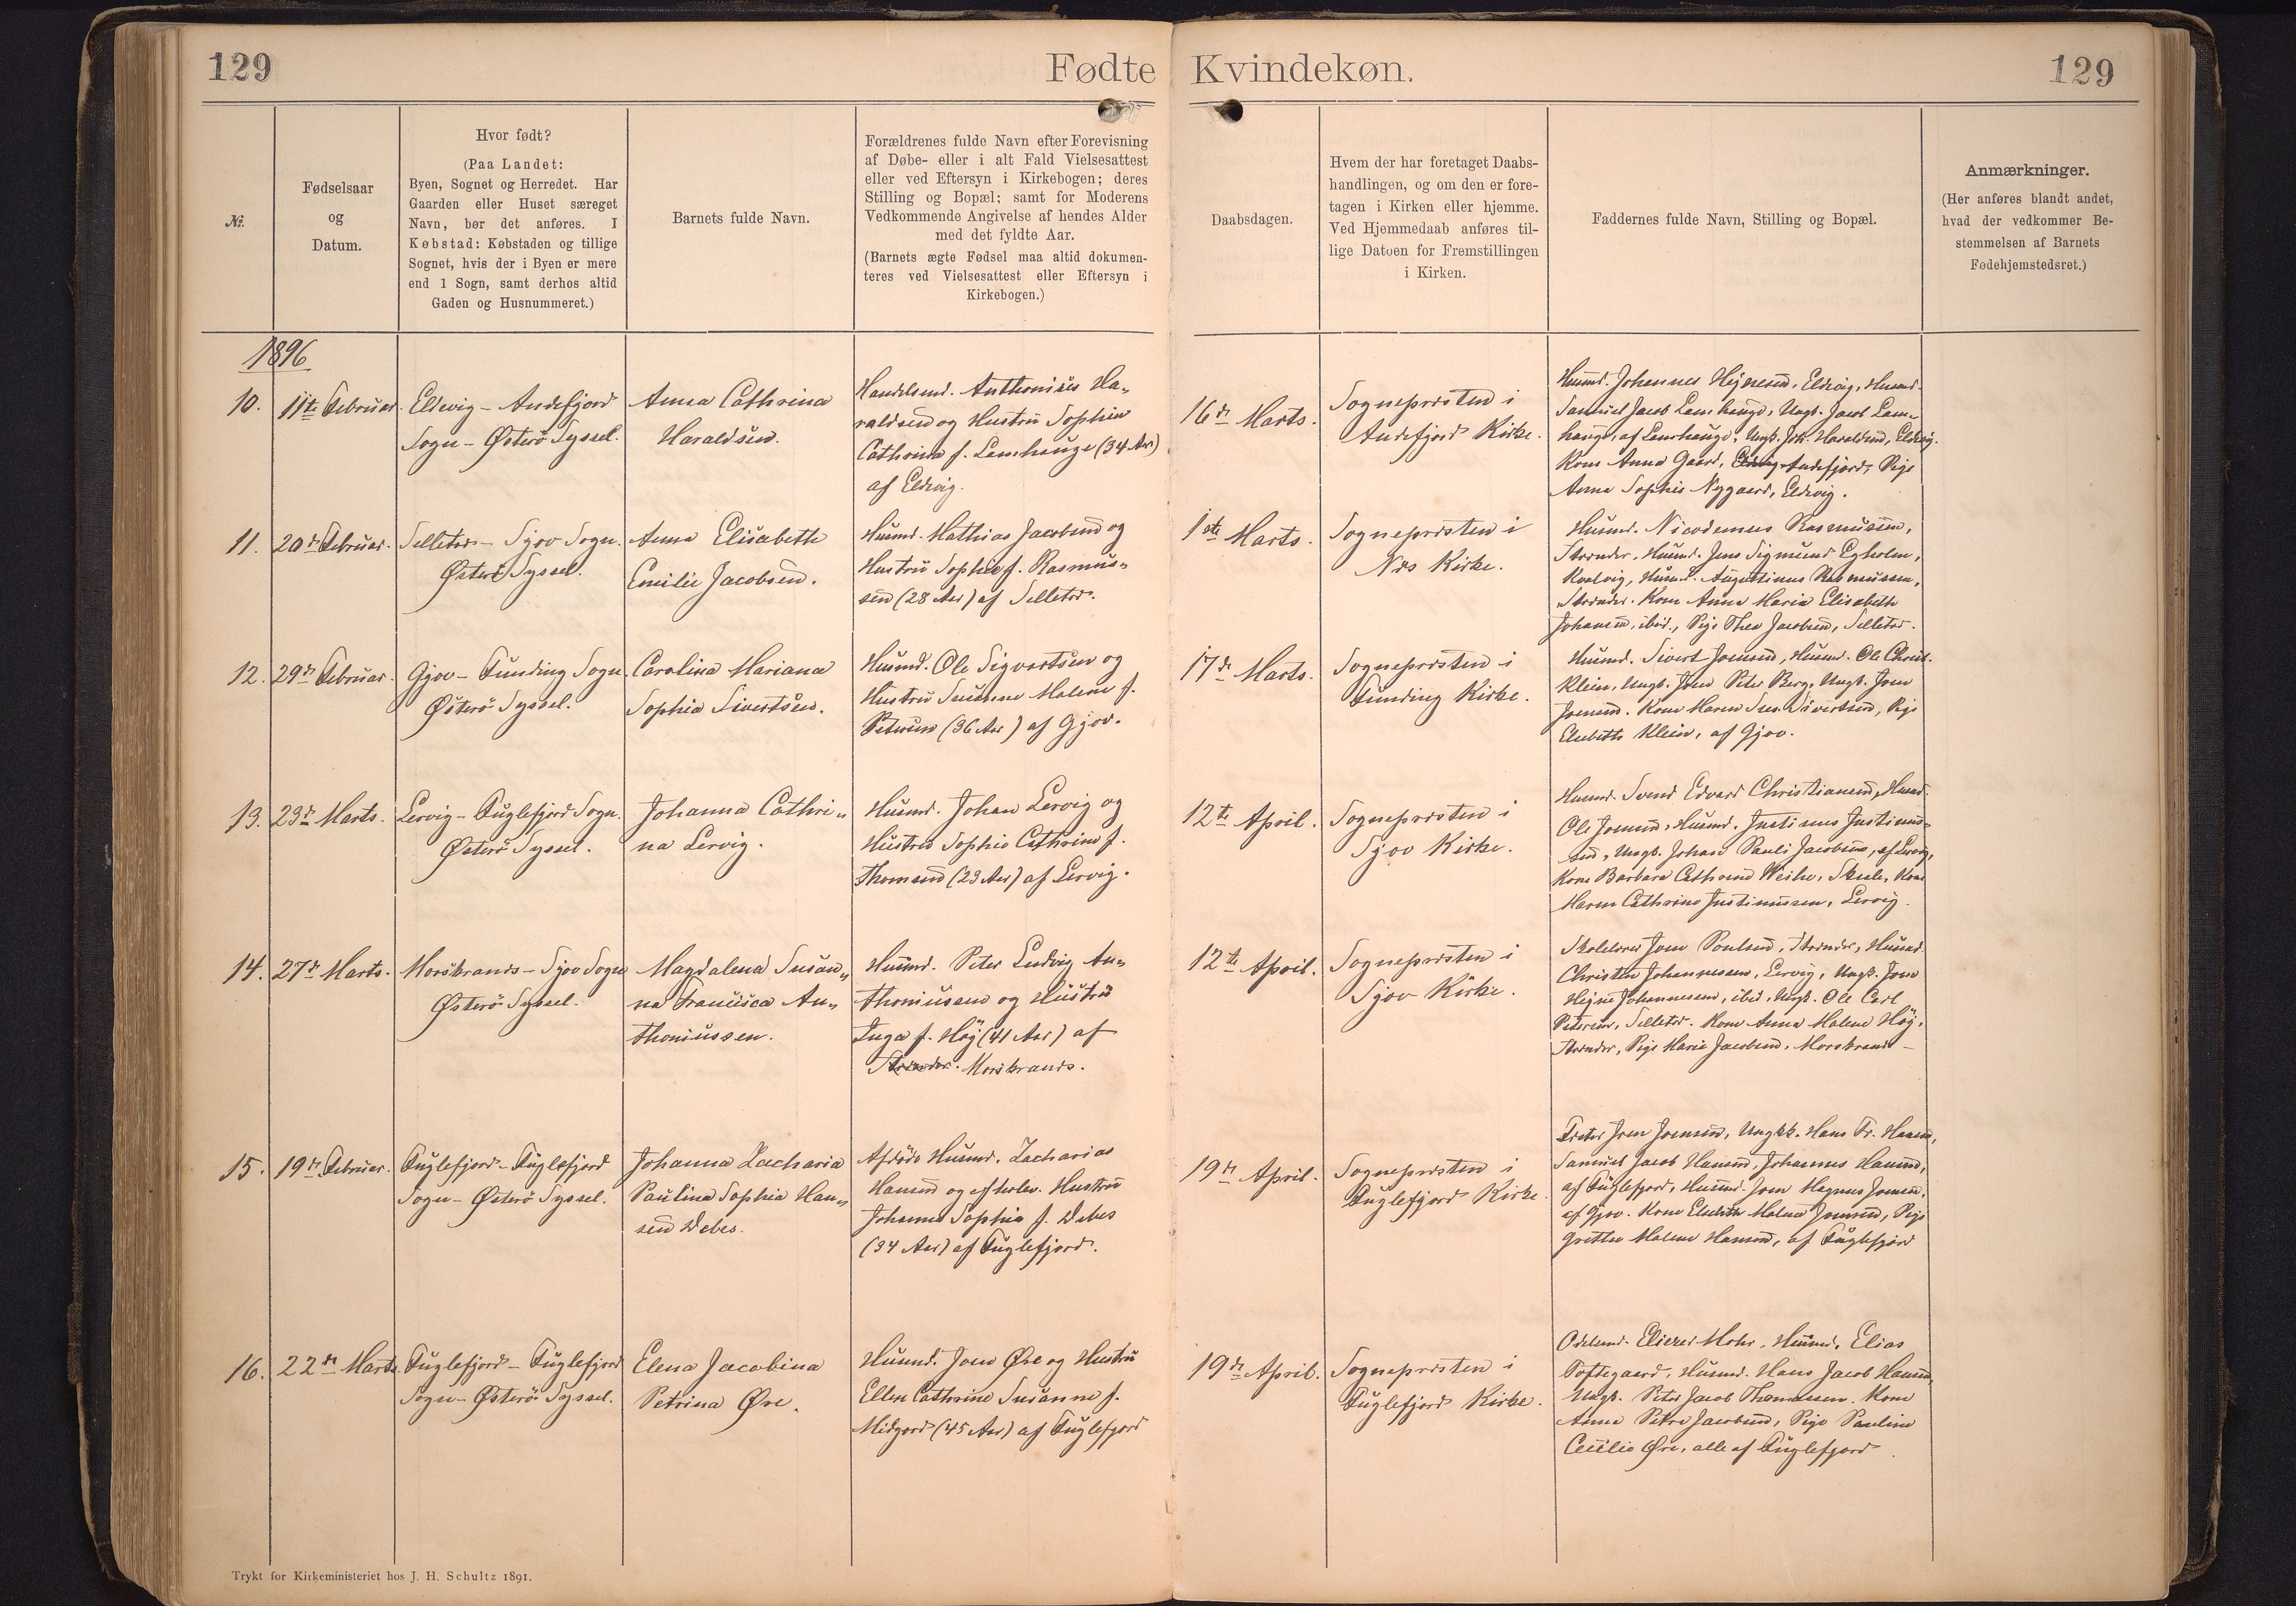 129
Fødte
Kvindekøn.
129
Nr.
Fødselsaar
og
Datum.
Hvor født?
(Paa Landet:
Byen, Sognet og Herredet. Har
Gaarden eller Huset særeget
Navn, bør det anføres. I
Købstad: Købstaden og tillige
Sognet, hvis der i Byen er mere
end 1 Sogn, samt derhos altid
Gaden og Husnummeret.)
Barnets fulde Navn.
Forældrenes fulde Navn efter Forevisning
af Døbe- eller i alt Fald Vielsesattest
eller ved Eftersyn i Kirkebogen; deres
Stilling og Bopæl; samt for Moderens
Vedkommende Angivelse af hendes Alder
med det fyldte Aar.
(Barnets ægte Fødsel maa altid dokumen-
teres ved Vielsesattest eller Eftersyn i
Kirkebogen.)
Daabsdagen.
Hvem der har foretaget Daabs-
handlingen, og om den er fore-
tagen i Kirken eller hjemme.
Ved Hjemmedaab anføres til-
lige Datoen for Fremstillingen
i Kirken.
Faddernes fulde Navn, Stilling og Bopæl.
Anmærkninger.
(Her anføres blandt andet,
hvad der vedkommer Be-
stemmelsen af Barnets
Fødehjemstedsret.)
1896
10.
11te Februar.
Eldevig - Andefjord
Sogn - Østerø Syssel.
Anna Cathrina
Haraldsen.
Handelsmd. Anthonius Ha-
raldsen og Hustru Sophia
Cathrina f. Lamhauge (34 Aar)
af Eldevig.
16de Marts.
Sognepræsten i
Andefjord Kirke.
Husmd. Johannes Hejnesen, Eldevig, Husmd.
Samuel Jacob Lamhauge, Ungk. Jacob Lam-
hauge, af Lamhauge, Ungk. Joh. Haraldsen, Eldevig.
Kone Anna Gaard, Andefjord, Pige
Anna Sophie Nygaard, Eldevig.
11.
20de Februar.
Selletræ - Sjov Sogn.
Østerø Syssel.
Anna Elisabeth
Emilie Jacobsen.
Husmd. Mathias Jacobsen og
Hustru Sophie f. Rasmus-
sen (28 Aar) af Selletræ.
1ste Marts.
Sognepræsten i
Næs Kirke.
Husmd. Nicodemus Rasmussen,
Strænder, Husmd. Jens Sigmund Egholm,
Kvalvig, Husmd. Augustinus Rasmussen,
Strænder. Kone Anna Maria Elisabeth
Johansen, ibid., Pige Thea Jacobsen, Selletræ.
12.
29de Februar.
Gjov - Funding Sogn
Østerø Syssel.
Carolina Mariana
Sophia Sivertsen.
Husmd. Ole Sigvertsen og
Hustru Susanne Malene f.
Petersen (36 Aar) af Gjov.
17de Marts.
Sognepræsten i
Funding Kirke.
Husmd. Sivert Joensen, Husmd. Ole Christ.
Klein, Ungk. Joen Peter Berg, Ungk. Joen
Joensen. Kone Maren Sus. Sivertsen, Pige
Elsebeth Klein, af Gjov.
13.
23de Marts.
Lervig - Fuglefjord Sogn.
Østerø Syssel.
Johanna Cathri-
na Lervig.
Husmd. Johan Lervig og
Hustru Sophie Cathrine f.
Thomsen (23 Aar) af Lervig.
12te April.
Sognepræsten i
Sjov Kirke.
Husmd. Svend Edvard Christiansen, Husmd.
Ole Joensen, Husmd. Justinus Justinus-
sen, Ungk. Johan Pauli Jacobsen, af Lervig,
Kone Barbara Cathrine Weihe, Skaale, Kone
Maren Cathrine Justinussen, Lervig.
14.
27de Marts.
Morskranes - Sjov Sogn
Østerø Syssel.
Magdalena Susan-
na Francisca An-
thoniussen.
Husmd. Peter Ludvig An-
thoniussen og Hustru
Inga f. Høj (41 Aar) af
Strænder. Morskranes.
12te April.
Sognepræsten i
Sjov Kirke.
Skolelærer Joen Poulsen, Strænder, Husmd.
Christen Johannessen, Lervig, Ungk. Joen
Hejne Johannessen, ibid, Ungk. Ole Carl
Petersen, Selletræ. Kone Anna Malene Høj,
Strænder, Pige Marie Jacobsen, Morskranes
15.
19de Februar.
Fuglefjord - Fuglefjord
Sogn - Østerø Syssel.
Johanna Zacharia
Paulina Sophia Han-
sen Debes.
Afdøde Husmd. Zacharias
Hansen og efterlev. Hustru
Johanne Sophie f. Debes
(34 Aar) af Fuglefjord.
19de April.
Sognepræsten i
Fuglefjord Kirke.
Joen Joensen, Ungkk. Hans Fr. Hansen,
Samuel Jacob Hansen, Johannes Hansen,
af Fuglefjord, Husmd. Joen Magnus Joensen,
af Gjov. Kone Elsebeth Malene Joensen, Pige
Grethe Malene Hansen, af Fuglefjord
16.
22de Marts
Fuglefjord - Fuglefjord
Sogn - Østerø Syssel.
Elena Jacobina
Petrina Øre.
Husmd. Joen Øre og Hustru
Ellen Cathrine Susanne f.
Midgord (45 Aar) af Fuglefjord
19de April.
Sognepræsten i
Fuglefjord Kirke.
Odelsmd. Eliezer Mohr, Husmd. Elias
Toftegaard, Husmd. Hans Jacob Hansen,
Ungk. Peter Jacob Thomassen. Kone
Anna Petra Jacobsen, Pige Pauline
Cecilie Øre, alle af Fuglefjord.
Trykt for Kirkeministeriet hos J. H. Schultz 1891.